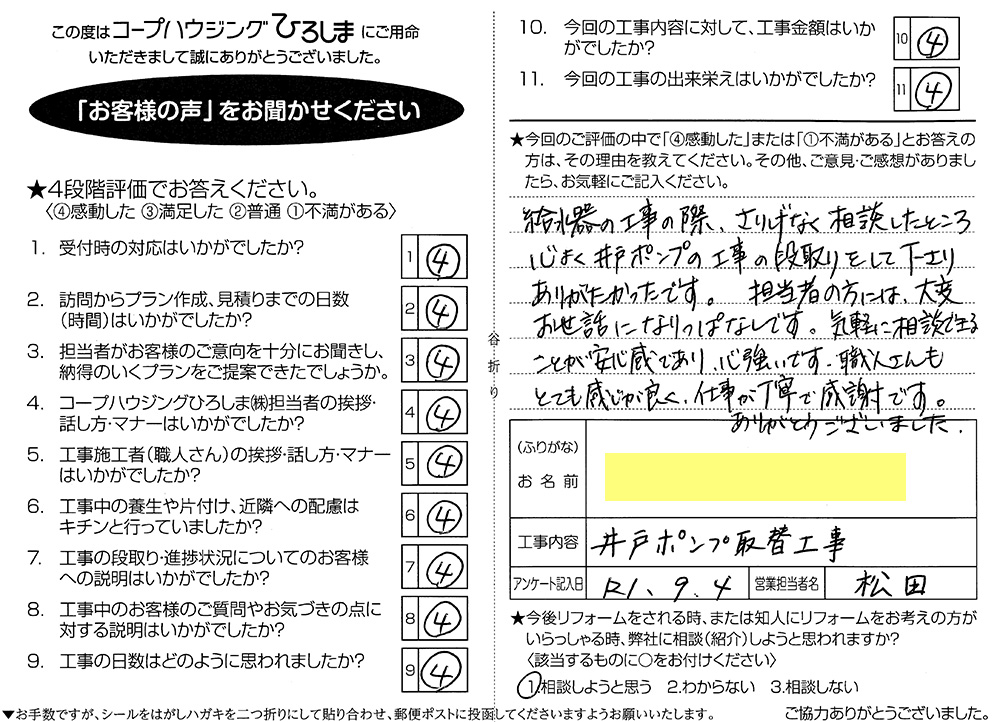 この度はコープハウジングひろしまにご用命
いただきまして誠にありがとうございました。
「お客様の声」をお聞かせください
★4段階評価でお答えください。
〈④感動した ③満足した ②普通 ①不満がある〉
1. 受付時の対応はいかがでしたか?
1 ④
2. 訪問からプラン作成、見積りまでの日数
(時間)はいかがでしたか?
2 ④
3. 担当者がお客様のご意向を十分にお聞きし、
納得のいくプランをご提案できたでしょうか。
3 ④
4. コープハウジングひろしま㈱担当者の挨拶・
話し方・マナーはいかがでしたか?
4 ④
5. 工事施工者(職人さん)の挨拶・話し方・マナー
はいかがでしたか?
5 ④
6. 工事中の養生や片付け、近隣への配慮は
キチンと行っていましたか?
6 ④
7. 工事の段取り・進捗状況についてのお客様
への説明はいかがでしたか?
7 ④
8. 工事中のお客様のご質問やお気づきの点に
対する説明はいかがでしたか?
8 ④
9. 工事の日数はどのように思われましたか?
9 ④
▼お手数ですが、シールをはがしハガキを二つ折りにして貼り合わせ、郵便ポストに投函してくださいますようお願いいたします。
谷折り
10. 今回の工事内容に対して、工事金額はいか
がでしたか?
10 ④
11. 今回の工事の出来栄えはいかがでしたか?
11 ④
★今回のご評価の中で「④感動した」または「①不満がある」とお答えの
方は、その理由を教えてください。その他、ご意見・ご感想がありまし
たら、お気軽にご記入ください。
給水器の工事の際、さりげなく相談したところ
心よく井戸ポンプの工事の段取りをして下さり
ありがたかったです。 担当者の方には、大変
お世話になりっぱなしです。気軽に相談できる
ことが安心感であり、心強いです。職人さんも
とても感じが良く、仕事が丁寧で感謝です。
ありがとうございました.
(ふりがな)
お名前
工事内容 井戸ポンプ取替工事
アンケート記入日 R1. 9. 4 営業担当者名 松田
★今後リフォームをされる時、または知人にリフォームをお考えの方が
いらっしゃる時、弊社に相談(紹介)しようと思われますか?
〈該当するものに○をお付けください〉
①.相談しようと思う 2.わからない 3.相談しない
ご協力ありがとうございました。